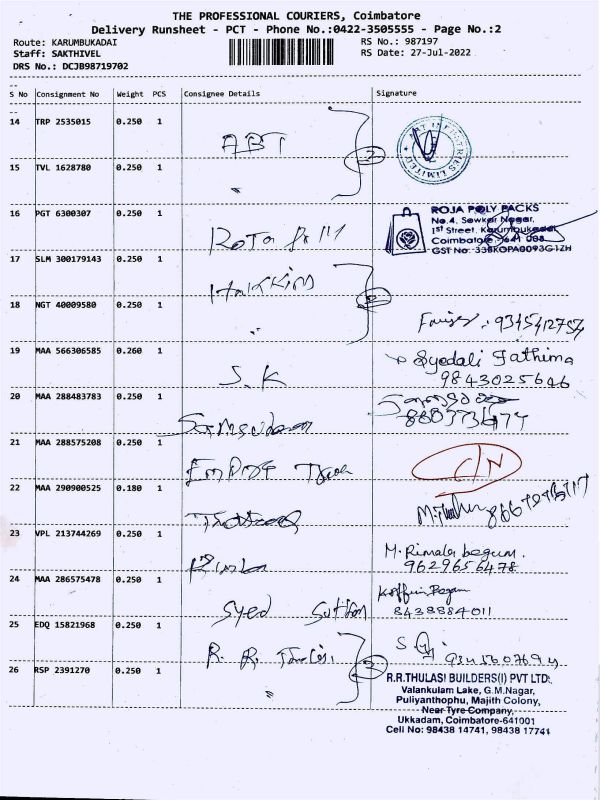 THE PROFESSIONAL COURIERS, Coimbatore
Delivery Runsheet - PCT - Phone No.:0422-3505555 - Page No.:2
Route: KARUMBUKADAI RS No.: 987197
Staff: SAKTHIVEL RS Date: 27-Jul-2022
DRS No.: DCJB98719702
S No Consignment No Weight PCS Consignee Details Signature
14 TRP 2535015 0.250 1 ABT 2
15 TVL 1628780 0.250 1 〃
16 PGT 6300307 0.250 1 Rota
ROJA POLY PACKS
No.4, Sewkar Nagar,
1st Street, Karumbukadai
Coimbatore - 641 008
GST No: 33BKOPA0093G1ZH
17 SLM 300179143 0.250 1 Hakkim 2
18 NGT 40009580 0.250 1 〃 9345412757
19 MAA 566306585 0.260 1 S.K Syedali Fathima
9843025646
20 MAA 288483783 0.250 1
21 MAA 288575208 0.250 1 C/N
22 MAA 290900525 0.180 1
23 VPL 213744269 0.250 1 M. Rimala begum.
9629656478
24 MAA 286575478 0.250 1 Syed Begam
8438884011
25 EDQ 15821968 0.250 1 R. R. Thulasi 2
26 RSP 2391270 0.250 1 〃
R.R.THULASI BUILDERS(I) PVT LTD.
Valankulam Lake, G.M.Nagar,
Puliyanthophu, Majith Colony,
Near Tyre Company,
Ukkadam, Coimbatore-641001
Cell No: 98438 14741, 98438 17741